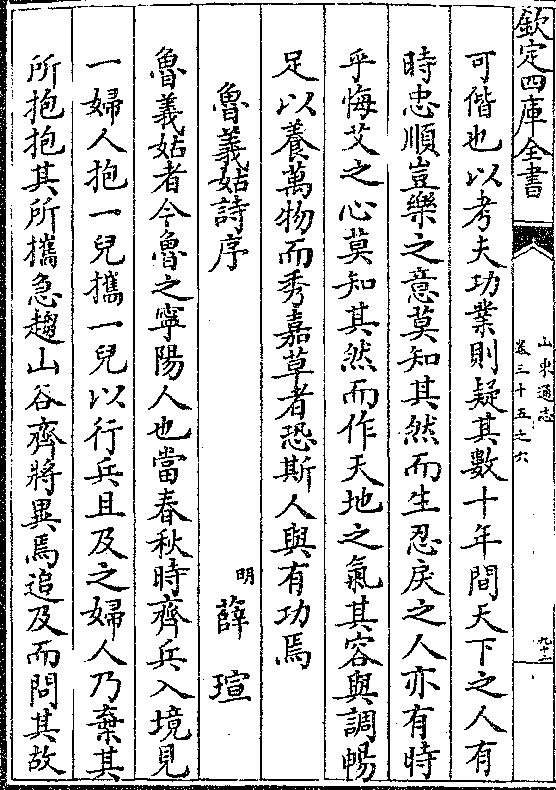 欽定四庫全書
山東通志
卷三十五之六
九十二
可偕也以考夫功業則疑其數十年間天下之人有
時忠順豈樂之意莫知其然而生忍戾之人亦有時
乎悔艾之心莫知其然而作天地之氣其容與調暢
足以養萬物而秀嘉草者恐斯人與有功焉
魯義姑詩序
明 薛瑄
魯義姑者今魯之寧陽人也當春秋時齊兵入境見
一婦人抱一兒攜一兒以行兵且及之婦人乃棄其
所抱抱其所攜急趨山谷齊將異焉追及而問其故